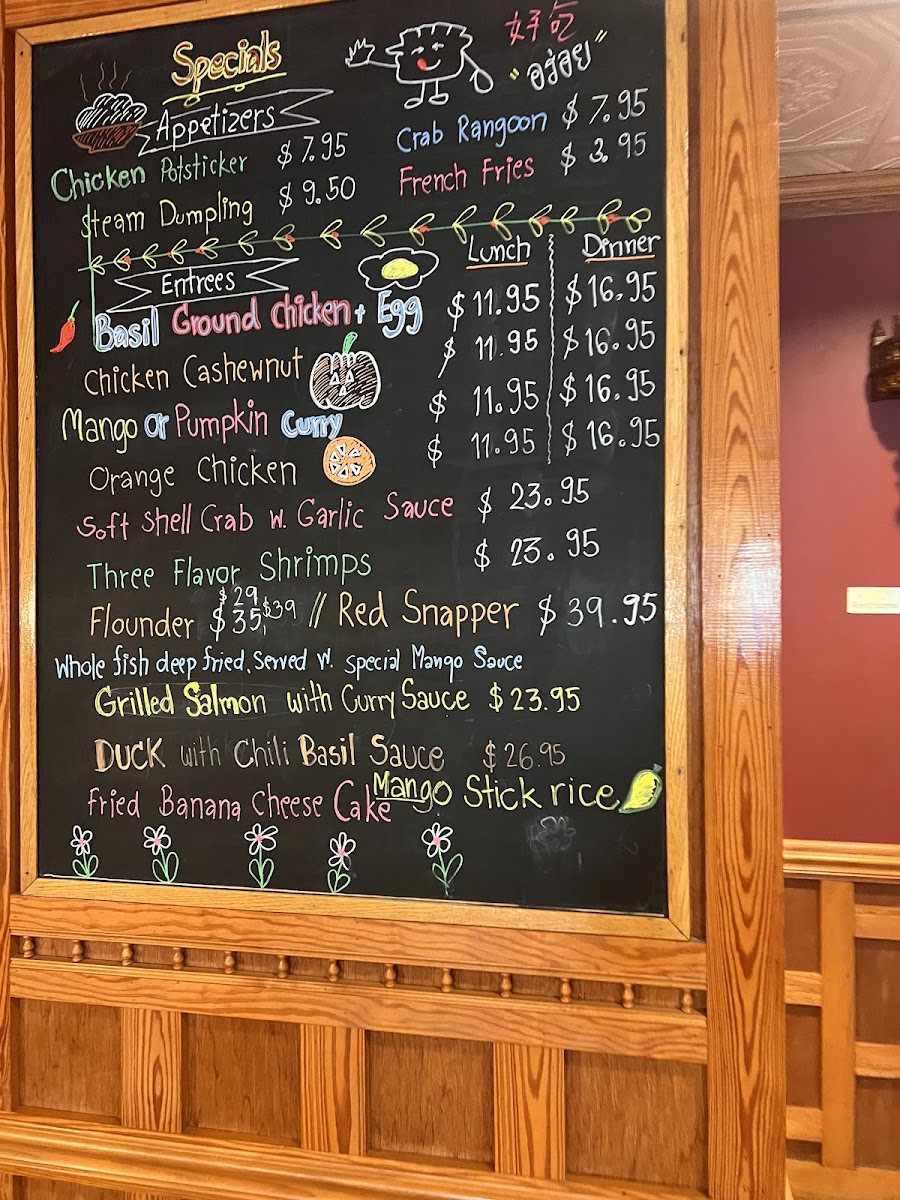 Specials
好吃
"อร่อย"
Appetizers
Chicken Potsticker $7.95
Crab Rangoon $7.95
Steam Dumpling $9.50
French Fries $3.95
Entrees
Lunch Dinner
Basil Ground Chicken + Egg $11.95 $16.95
Chicken Cashewnut $11.95 $16.95
Mango or Pumpkin Curry $11.95 $16.95
Orange Chicken $11.95 $16.95
Soft Shell Crab w. Garlic Sauce $23.95
Three Flavor Shrimps $23.95
Flounder $29 $35, $39 // Red Snapper $39.95
Whole fish deep fried. Served w. special Mango Sauce
Grilled Salmon with Curry Sauce $23.95
Duck with Chili Basil Sauce $26.95
Fried Banana Cheese Cake
Mango Stick rice